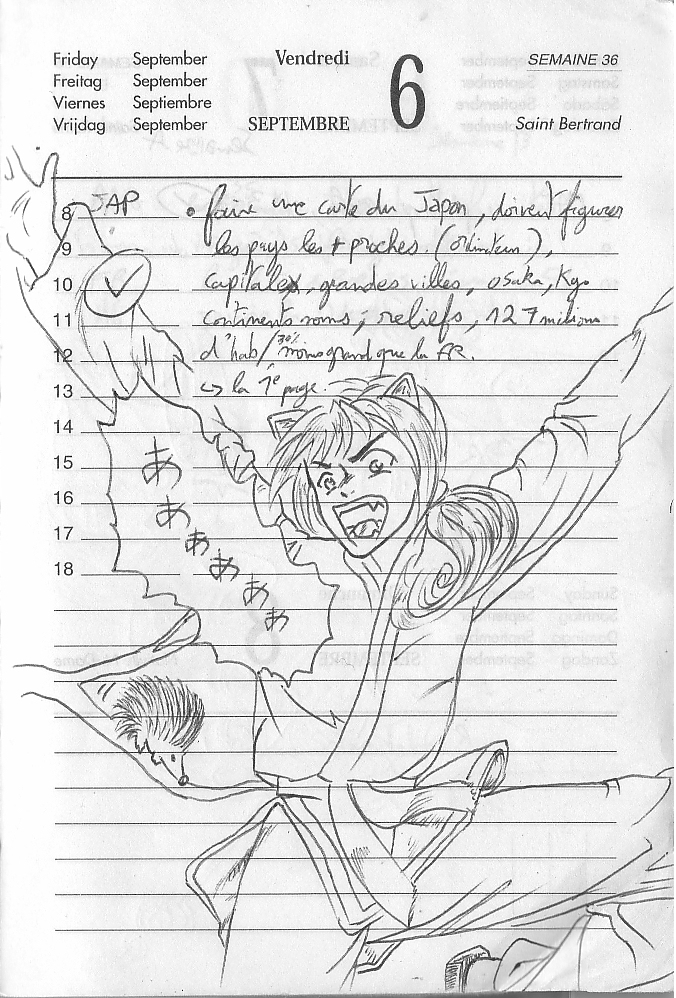 Friday September
Freitag September
Viernes Septiembre
Vrijdag September
Vendredi
SEPTEMBRE
6
SEMAINE 36
Saint Bertrand
8 JAP • faire une carte du Japon, doivent figurer
9 les pays les + proches. (ordinateur),
10 capitale, grandes villes, osaka, Kyo
11 continents noms ; reliefs, 127 millions
12 d'hab/ 30% moins grand que la FR.
13 ↳ la 1e page.
14
15
16
17
18
あ
あ
あ
あ
あ
あ